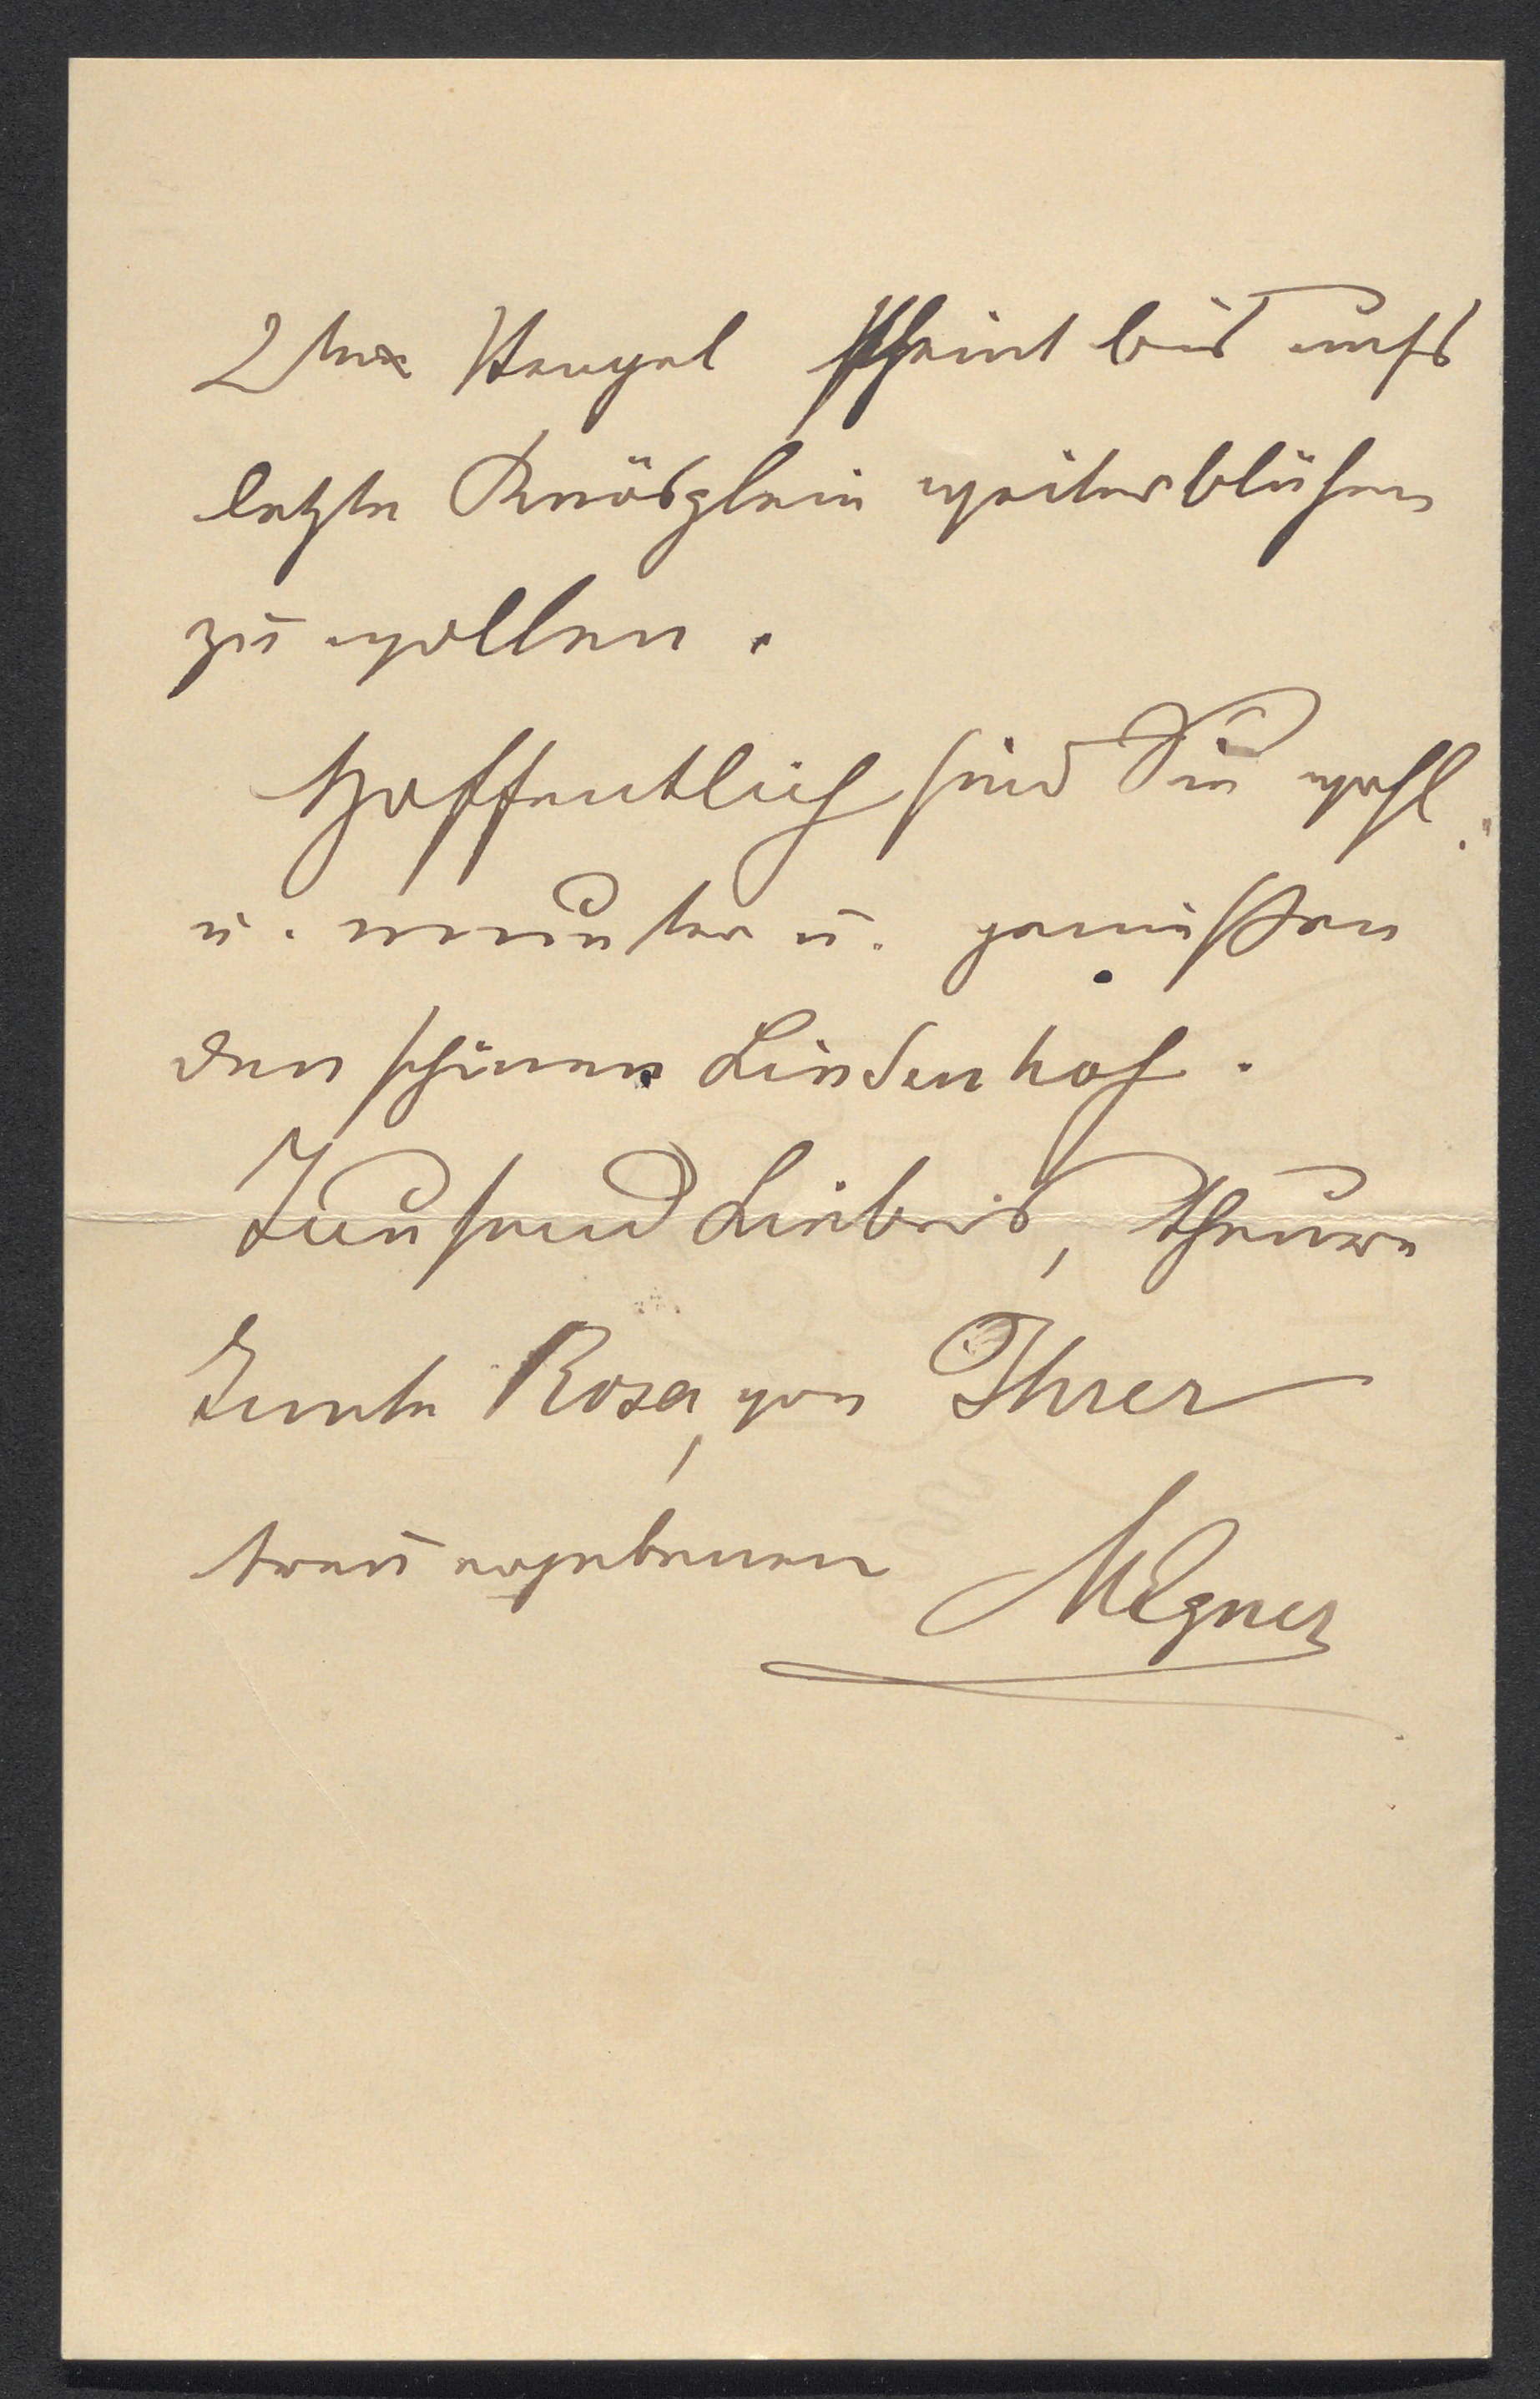 2ter Stengel scheint bis aufs
letzte Knösplein weiterblühen
zu wollen.
Hoffentlich sind Sie wohl
u. munter u. geniessen
den schönen Lindenhof.
Tausend Liebes, theure
Tante Rosa, von Ihrer
treu ergebenen MEgner